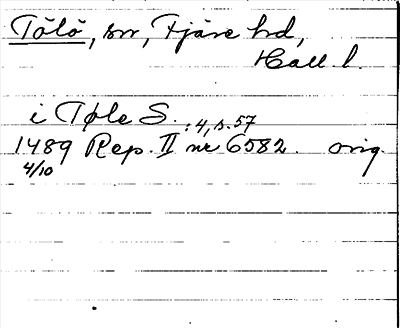 Tölö, sn, Fjäre hd,
Hall. l.
i Tøle S. : 4, s. 57
1489 Rep. II nr 6582. orig.
4/10